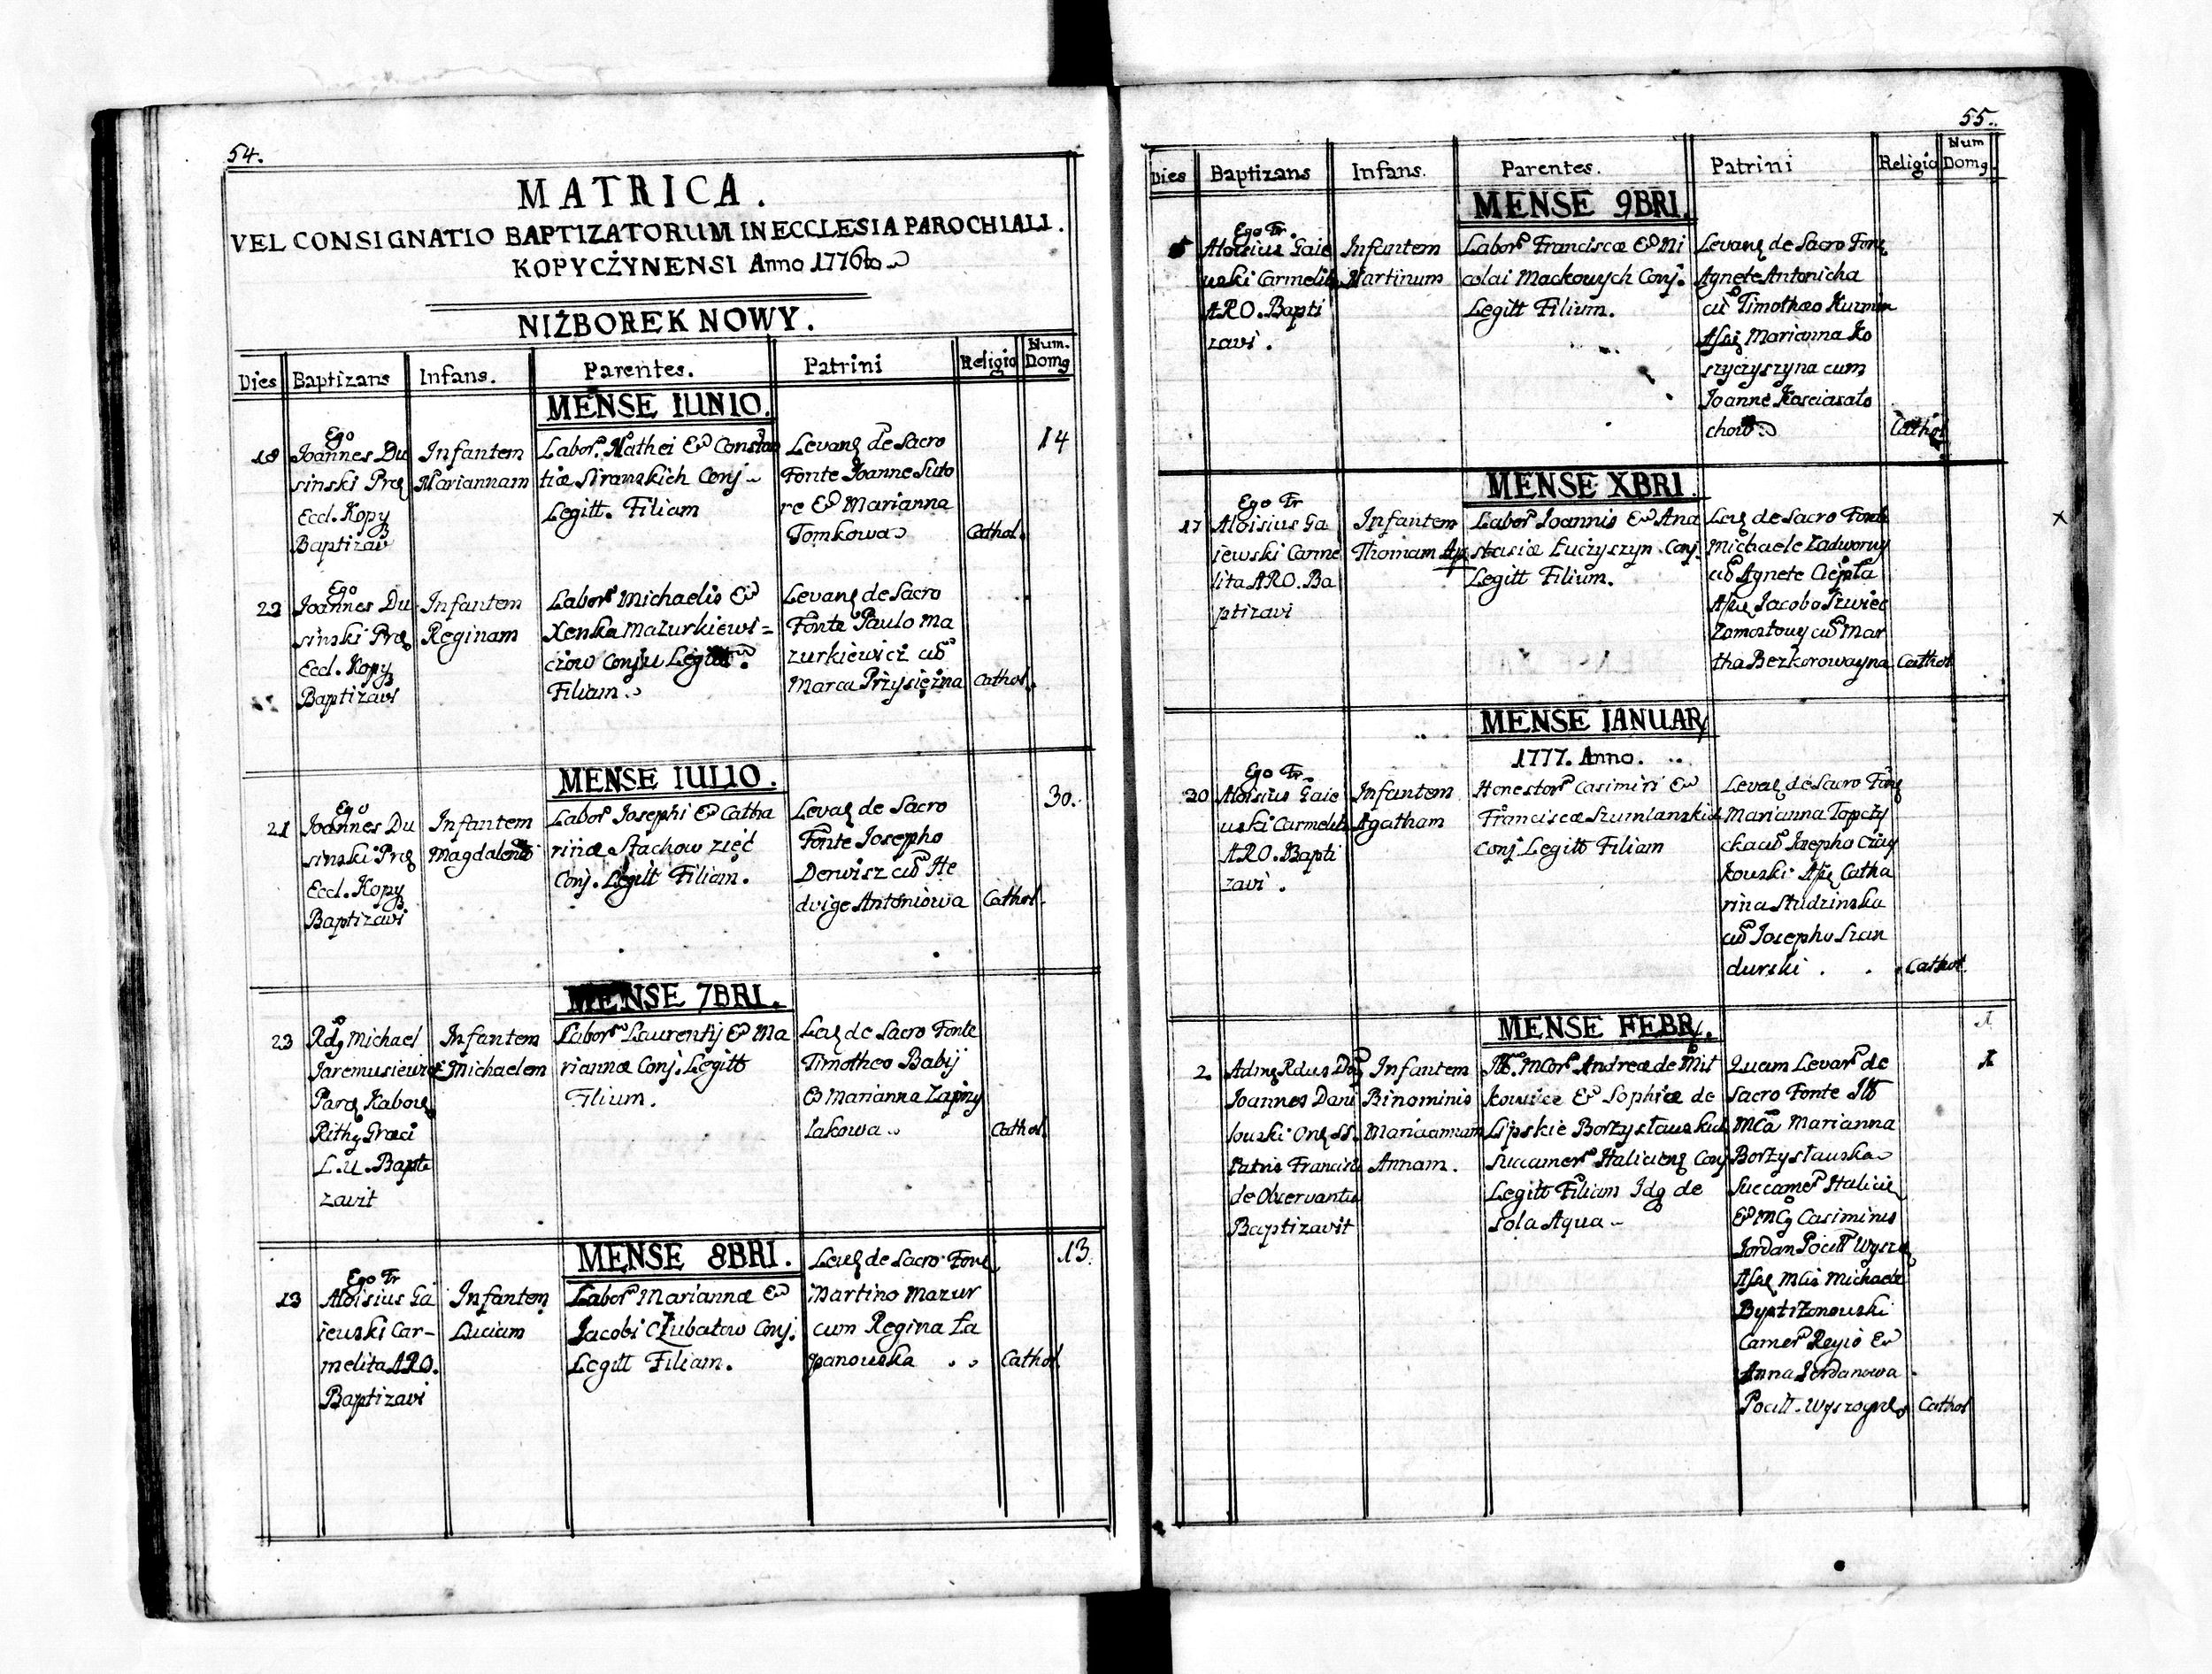 54.
MATRICA.
VEL CONSIGNATIO BAPTIZATORUM IN ECCLESIA PAROCHIALI.
KOPYCŻYNENSI Anno 1776to
NIŻBOREK NOWY.
Dies Baptizans Infans. Parentes. Patrini Religio Num. Domg
MENSE IUNIO.
18
Ego
Joannes Du
sinski Præ
Eccl. Kopy
Baptizav
Infantem
Mariannam
Labor. Mathei & Constan
tiæ Conj
Legitt. Filiam
Levang de Sacro
Fonte Joanne Suto
re & Marianna
Tomkowa
Cathol.
14
23
Ego
Joannes Du
sinski Præ
Eccl. Kopy
Baptizavi
Infantem
Reginam
Labor Michaelis &
Xenka Mazurkiewi=
czow Conju
Filiam
Levang de Sacro
Fonte Paulo Ma
zurkiewicz cu
Marca Przysiężna
Cathol.
MENSE IULIO.
21
Ego
Joannes Du
sinski Præ
Eccl. Kopy
Baptizavi
Infantem
Labor Josephi & Catha
rinæ Stachow zięć
Conj. Legitt Filiam.
Levag de Sacro
Fonte Josepho
Derwisz cu He
dvige Antoniowa
Cathol.
30.
MENSE 7BRI.
23
Rdg Michael
Jaremusiewicz
Ritg Græci
L.U. Bapti
zavit
Infantem
Michaelem
Labor Laurentij & Ma
riannæ Conj. Legitt
Filium.
Leug de Sacro Fonte
Timotheo Babij
& Marianna Zapiry
lakowa
Cathol.
MENSE 8BRI.
13
Ego Fr
Aloisius Ga
jewski Car-
melita ARO.
Baptizavi
Infantem
Luciam
Labor Mariannæ &
Jacobi Czubatow Conj.
Legitt Filiam.
Leug de Sacro Fonte
Martino Mazur
cum Regina Ła
panowska
Cathol.
13.
55.
Dies Baptizans Infans. Parentes. Patrini Religio Num Domg.
MENSE 9BRI.
Ego Fr
Aloisius Gaie
wski Carmelita
ARO. Bapti
zavi.
Infantem
Martinum
Labor Franciscæ & Ni
colai Mackowych Conj.
Legitt Filium.
Levang de Sacro Font
Agnete Antonicha
cu Timotheo Kuzmin
Marianna Ko
szyczyszyna cum
Joanne Kosciarato
chow
Cathol
MENSE XBRI.
17
Ego Fr
Aloisius Ga
jewski Carme
lita ARO. Ba
ptizavi
Infantem
Thomam Ap
Labor Joannis & Ana
stasiæ Łuczyszyn Conj.
Legitt Filium.
Leug de Sacro Fonte
Michaele Zadworny
cu Agnete Ciepła
Jacobo Szwiec
Zomostowy cu Mar
tha Bezkorowayna
Cathol
x
MENSE IANUAR
1777. Anno.
20
Ego Fr
Aloisius Gaie
wski Carmelita
ARO. Bapti
zavi.
Infantem
Agatham
Honestor Casimiri &
Franciscæ Szumlanskich
Conj Legitt Filiam
Levag de Sacro Font
Marianna Topczy
cka cu Josepho Czay
kowski Catha
rina Studzinska
cu Josepho Szan
durski .
Cathol.
MENSE FEBR.
2
Joannes Dani
Patris Francisci
de Observantia
Baptizavit
Infantem
Binominis
Mariannam
Annam.
Andreæ de Mit
kowice & Sophiæ de
Lipskie Borzysławskich
Succamer Halicieng Conj
Legitt Filiam Idg de
sola Aqua
Quam Levar de
Sacro Fonte Ill
Marianna
Borzysławska
Succamer Halicie
& Casimirus
Jordan Pocill Wysz
Michaele
Camer Regio &
Anna Jordanowa
Pocill. Wyszogrod
Cathol
1
1